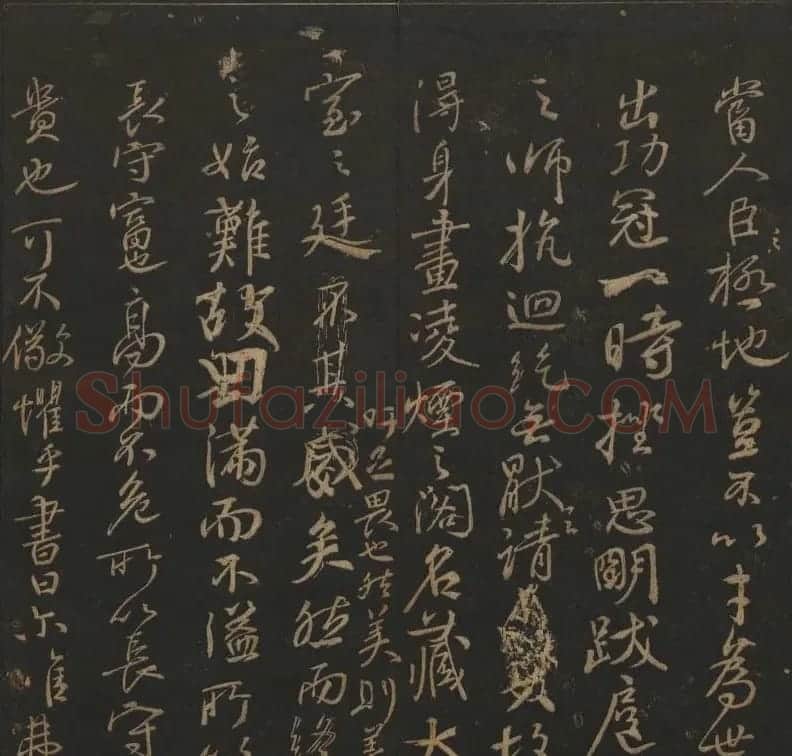 當人臣之極地豈不以才為世
出功冠一時挫思明跋扈
之師抗迴紇無厭之請
得身畫凌煙之閣名藏太
室之廷其威矣然而終
吁足畏也然美則美
之始難故曰滿而不溢所以
長守富也高而不危所以長守
貴也可不儆懼乎書曰尓唯弗
Shufaziliao.COM